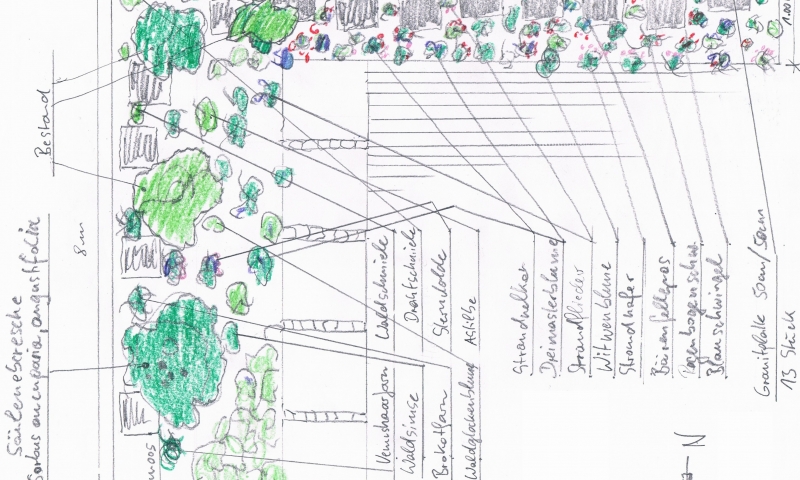 Säuleneberesche
Sorbus aucuparia, angustifolia
Bestand
8 m
moos
Waldschmiele
Drahtschmiele
Sterndolde
Astilbe
Venushaarfarn
Waldsimse
Brokatfarn
Waldglockenblume
Strandnelken
Dreimasterblume
Strandflieder
Witwenblume
Strandhafer
Bärenfellgras
Regenbogenschw
Blauschwingel
Granitplatte 50cm/50cm
13 Stück
1.00
N